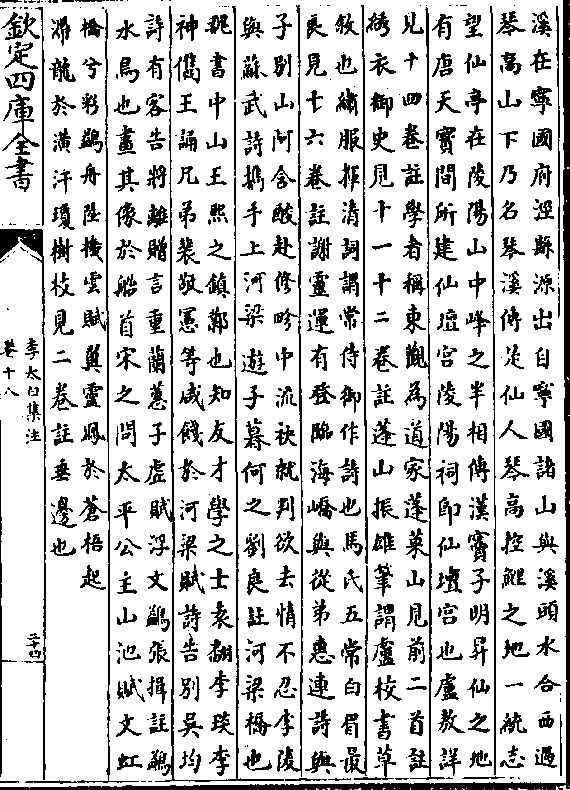 溪在寧國府涇縣源出自寧國諸山與溪頭水合西過
琴高山下乃名琴溪傳是仙人琴高控鯉之地一統志
望仙亭在陵陽山中峰之半相傳漢竇子明昇仙之地
有唐天寳間所建仙壇宮陵陽祠即仙壇宮也盧敖詳
見十四卷註學者稱東觀為道家蓬萊山見前二首註
綉衣御史見十一十二卷註蓬山振雄筆謂盧校書草
敘也繡服揮清詞謂常侍御作詩也馬氏五常白眉最
良見十六卷註謝靈運有登臨海嶠與從弟惠連詩與
子别山阿含酸赴修畛中流袂就判欲去情不忍李陵
與蘇武詩攜手上河梁遊子暮何之劉良註河梁橋也
魏書中山王熙之鎮鄴也知友才學之士袁翻李琰李
神儁王誦兄弟裴敬憲等咸餞於河梁賦詩告别吳均
詩有客告將離贈言重蘭蕙子虚賦浮文鷁張揖註鷁
水鳥也畫其像於船首宋之問太平公主山池賦文虹
橋兮彩鷁舟陸機雲賦翼靈鳳於蒼梧起
滯龍於潢汙瓊樹枝見二卷註垂邊也
欽定四庫全書
李太白集注
卷十八
二十四